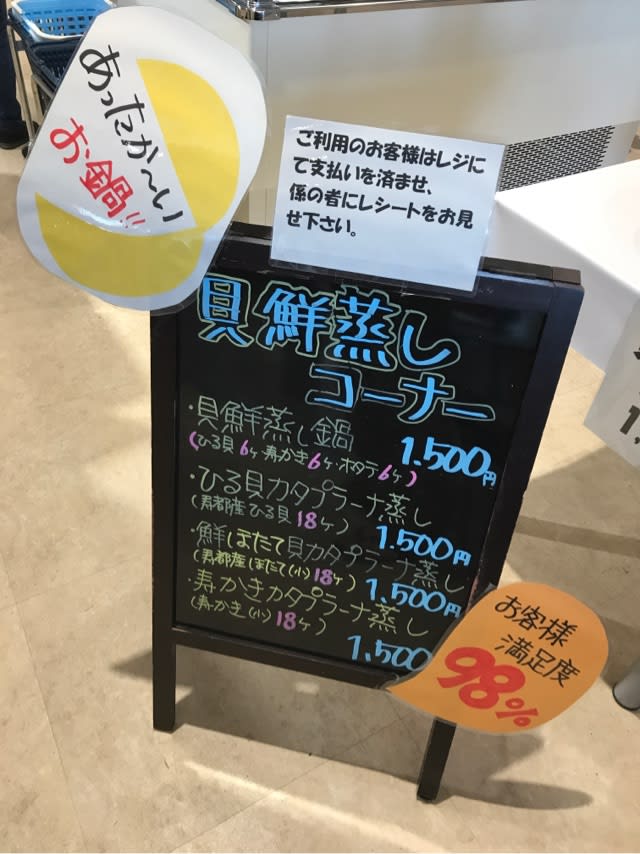 あったか〜い
お鍋!!
ご利用のお客様はレジに
て支払いを済ませ、
係の者にレシートをお見
せ下さい。
貝鮮蒸し
コーナー
・貝鮮蒸し鍋
(ひる貝6ヶ・寿かき6ヶ・ホタテ6ヶ) 1.500円
・ひる貝カタプラーナ蒸し
(寿都産ひる貝18ヶ) 1.500円
・鮮ほたて貝カタプラーナ蒸し
(寿都産ほたて(小)18ヶ) 1.500円
・寿かきカタプラーナ蒸し
(寿かき(小)18ヶ) 1,500
お客様
満足度
98%